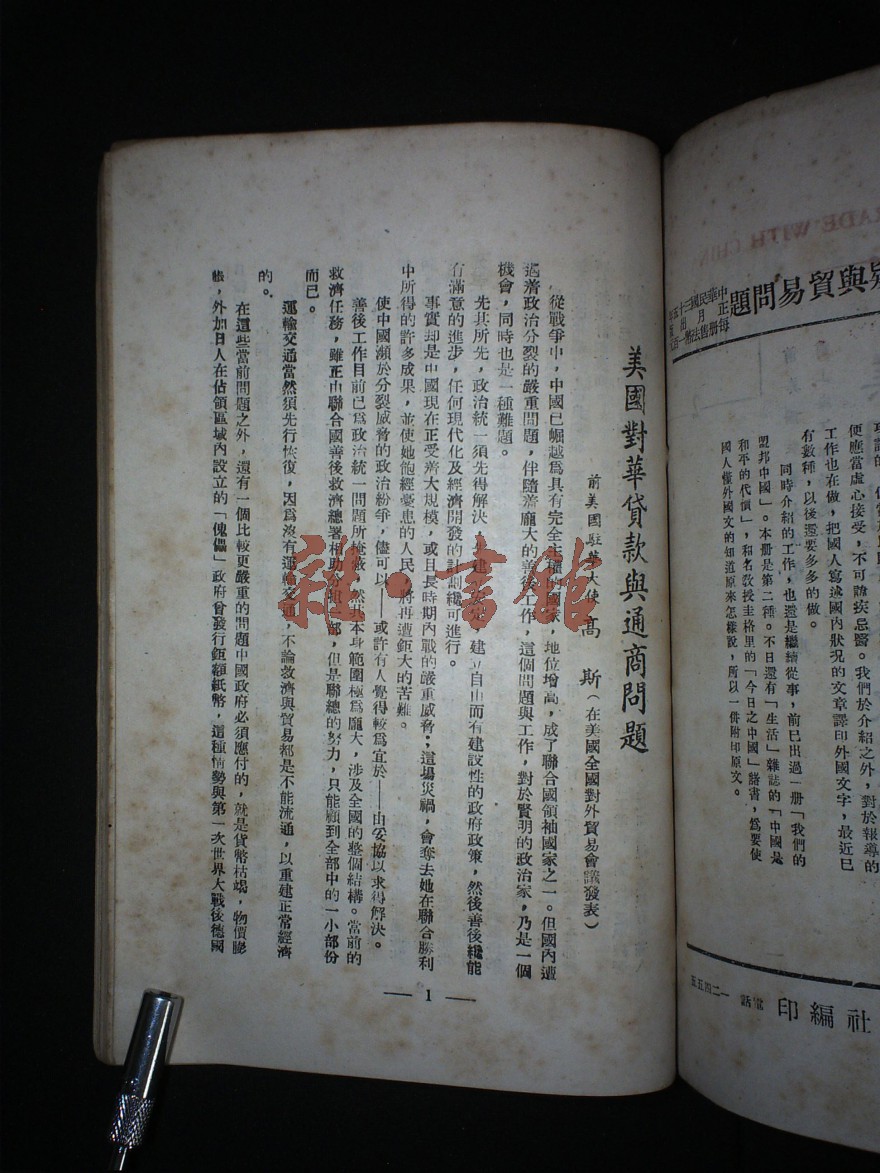 RADE WITH CHIN
與貿易問題
有數種，以後還要多多的做。
工作也在做，把國人寫述國內狀況的文章譯印外國文字，最近已
便應當虛心接受，不可諱疾忌醫。我們於介紹之外，對於報導的
同時介紹的工作，也還是繼續從事，前已出過一册「我們的
盟邦中國」。本册是第二種。不日還有「生活」雜誌的「中國是
和平的代價」，和名教授圭格里的「今日之中國」諸書，爲要使
國人懂外國文的知道原來怎樣說，所以一倂附印原文。
社編印
電話 一二四五五
美國對華貸款與通商問題
前美國駐華大使高 斯（在美國全國對外貿易會議發表）
從戰爭中，中國已崛起爲具有完全主權的國家，地位增高，成了聯合國領袖國家之一。但國內遭
遇着政治分裂的嚴重問題，伴隨着龐大的善後工作，這個問題與工作，對於賢明的政治家，乃是一個
機會，同時也是一種難題。
先其所先，政治統一須先得解決，建立自由而有建設性的政府政策，然後善後纔能
有滿意的進步，任何現代化及經濟開發的計劃纔可進行。
事實却是中國現在正受着大規模，或且長時期內戰的嚴重威脅；這場災禍，會奪去她在聯合勝利
中所得的許多成果，並使她飽經憂患的人民，將再遭鉅大的苦難。
使中國瀕於分裂威脅的政治紛爭，儘可以——或許有人覺得較爲宜於——由妥協以求得解決。
善後工作目前已爲政治統一問題所掩蔽，然其本身範圍極爲龐大，涉及全國的整個結構。當前的
救濟任務，雖正由聯合國善後救濟總署相助分担一部，但是聯總的努力，只能顧到全部中的一小部份
而已。
運輸交通當然須先行恢復，因爲沒有運輸交通，不論救濟與貿易都是不能流通，以重建正常經濟
的。
在這些當前問題之外，還有一個比較更嚴重的問題中國政府必須應付的，就是貨幣枯竭，物價膨
脹，外加日人在佔領區域內設立的「傀儡」政府曾發行鉅額紙幣，這種情勢與第一次世界大戰後德國
— 1 —
雜·書館